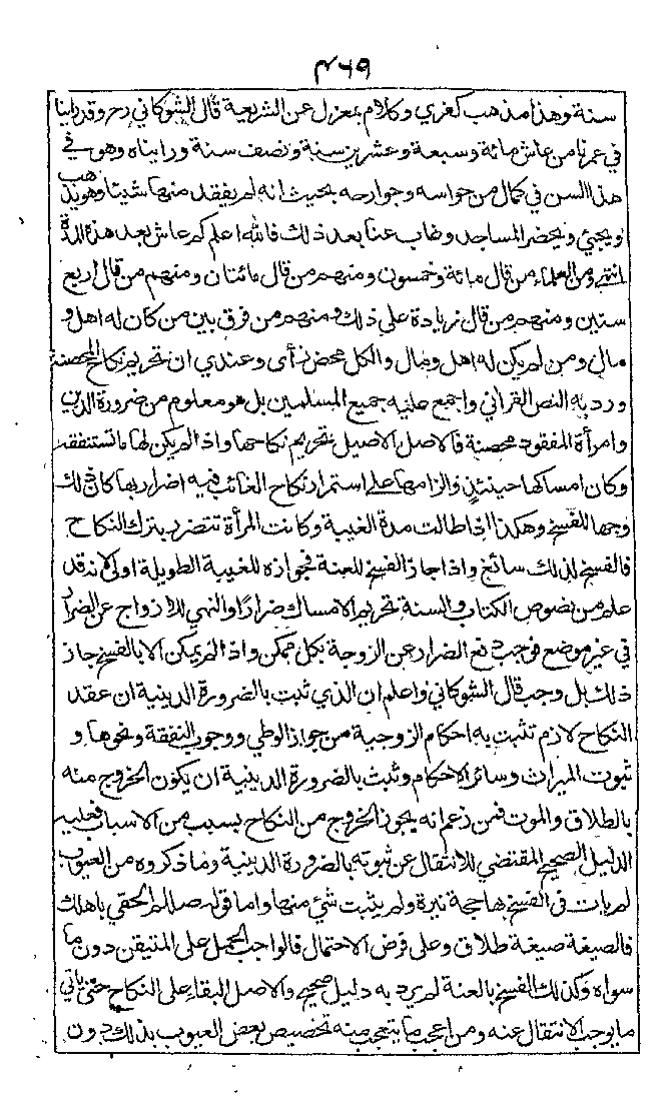 ٤٦٩
سنة وهذا مذهب كغري وكلام بمعزل عن الشريعة قال الشوكاني رح وقد راينا
في عمرنا من عاش مائة وسبعة وعشرين سنة ونصف سنة وراٮناه وهو في
هذا السن في كمال من حواسه وجوارحه بحيث انه لم يفقد منها شيئا وهو يذهب
ويجيئ ويحضر المساجد وغاب عنا بعد ذلك فالله اعلم كم عاش بعد هذه المدة
انتهى ومن العلماء من قال مائة وخمسون ومنهم من قال مائتان ومنهم من قال اربع
سنين ومنهم من قال زيادة على ذلك ومنهم من فرق بين من كان له اهل و
مال ومن لم يكن له اهل ومال والكل محض رأى وعندي ان تحريم نكاح المحصنة
ورد به النص القراني واجمع عليه جميع المسلمين بل هو معلوم من ضرورة الدين
وامرأة المفقود محصنة فالاصل الاصيل تحريم نكاحها واذا لم يكن لها ما تستنفقه
وكان امساكها حينئذ والزامها على استمرار نكاح الغائب فيه اضرار بها كان ذلك
وجها للفسخ وهكذا اذا طالت مدة الغيبة وكانت المرأة تتضرر بترك النكاح
فالفسخ لذلك سائغ واذا جاز الفسخ للعنة فجوازه للغيبة الطويلة اولى لانه قد
علم من نصوص الكتاب والسنة تحريم الامساك ضرارا والنهي للازواج عن الضرار
في غير موضع فوجب دفع الضرار عن الزوجة بكل ممكن واذا لم يكن الا بالفسخ جاز
ذلك بل وجب قال الشوكاني واعلم ان الذي ثبت بالضرورة الدينية ان عقد
النكاح لازم تثبت به احكام الزوجية من جواز الوطي ووجوب النفقة ونحوها و
ثبوت الميراث وسائر الاحكام وثبت بالضرورة الدينية ان يكون الخروج منه
بالطلاق والموت فمن زعم انه يجوز الخروج من النكاح بسبب من الاسباب فعليه
الدليل الصحيح المقتضي للانتقال عن ثبوته بالضرورة الدينية وما ذكروه من العيوب
لم يات في الفسخ بها حجة نيرة ولم يثبت شئ منها واما قوله صللم الحقي باهلك
فالصيغة صيغة طلاق وعلى فرض الاحتمال فالواجب الحمل على المتيقن دون ما
سواه وكذلك الفسخ بالعنة لم يرد به دليل صحيح والاصل البقاء على النكاح حتى ياتي
ما يوجب الانتقال عنه ومن اعجب ما يتعجب منه تخصيص بعض العيوب بذلك دون